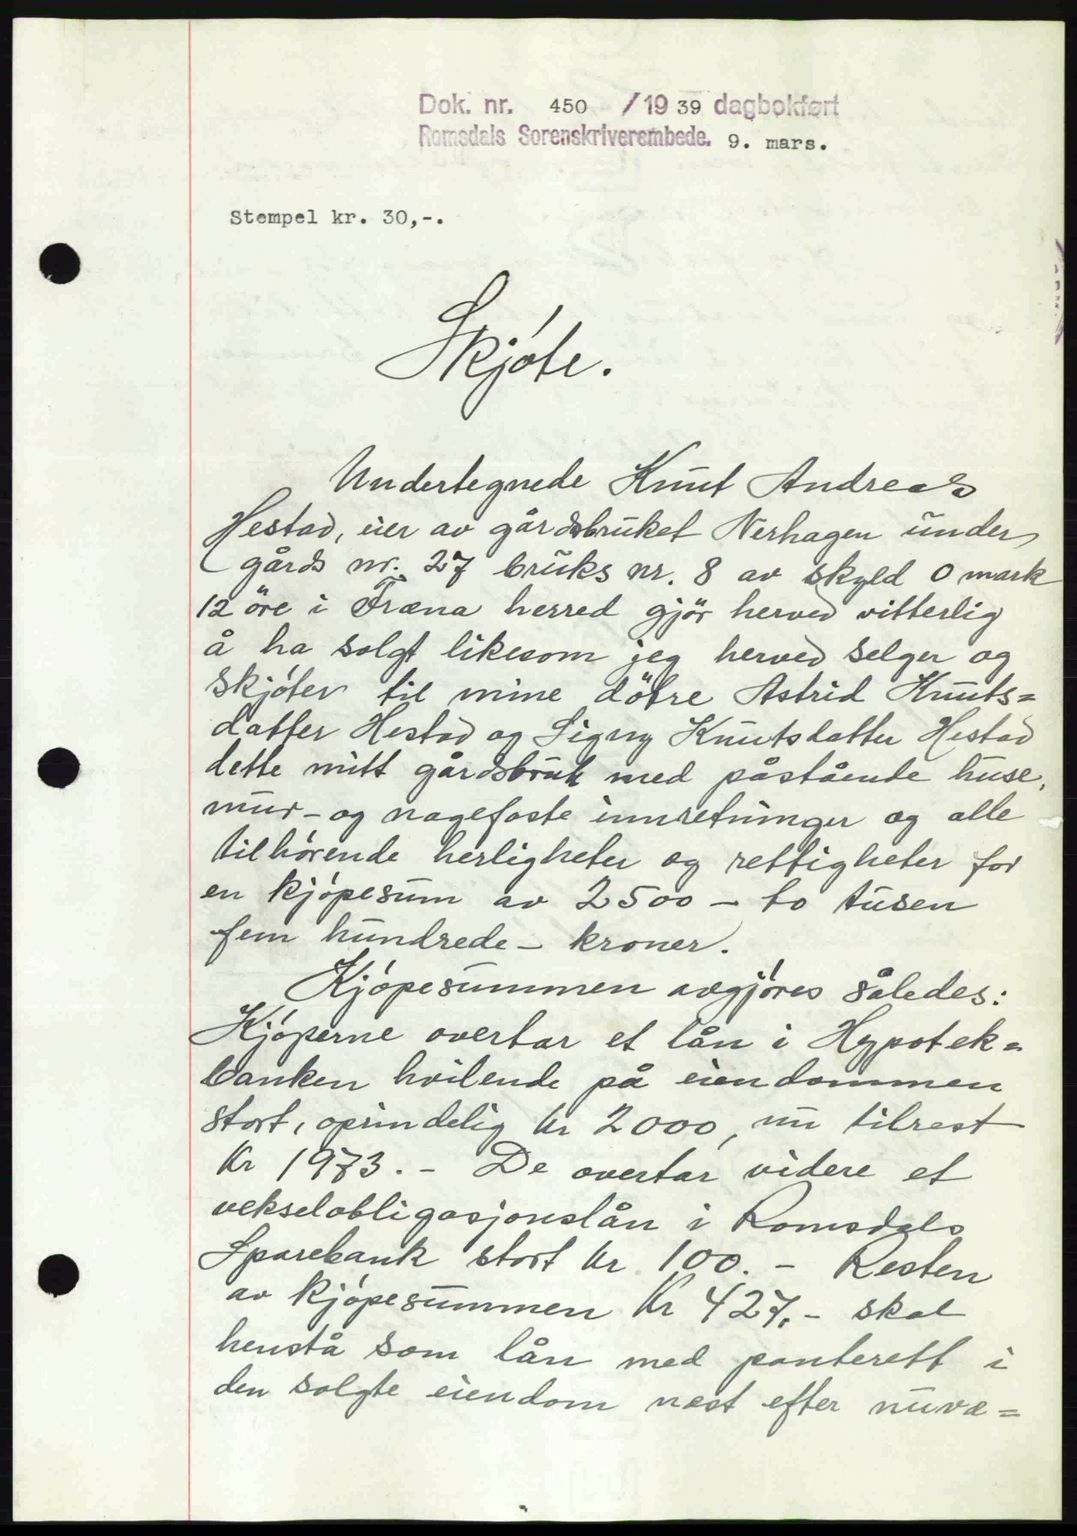 Dok. nr. 450 / 19 39 dagbokført
Romsdals Sorenskriverembede. 9. mars.
Stempel kr. 30,-.
Skjóte.
Undertegnede Knut Andreas
Hestad, eier av gårdsbruket Nerhagen under
gårds nr. 27 bruks nr. 8 av skyld 0 mark
12 öre i Fræna herred gjör herved vitterlig
å ha solgt likesom jeg herved selger og
skjóter til mine dötre Astrid Knuts=
datter Hestad og Signy Knutsdatter Hestad
dette mitt gårdsbruk med påstående huse,
mur- og nagefaste innretninger og alle
tilhórende herligheter og rettigheter for
en kjópesum av 2500 - to tusen
fem hundrede - kroner.
Kjópesummen avgjóres således:
Kjóperne overtar et lån i Hypotek=
banken hvilende på eiendommen
stort, oprindelig kr 2000, nu tilrest
kr 1973. - De overtar videre et
vekselobligasjonslån i Romsdals
Sparebank stort kr 100. - Resten
av kjópesummen kr 427,- skal
henstå som lån med panterett i
den solgte eiendom næst efter nuvæ=